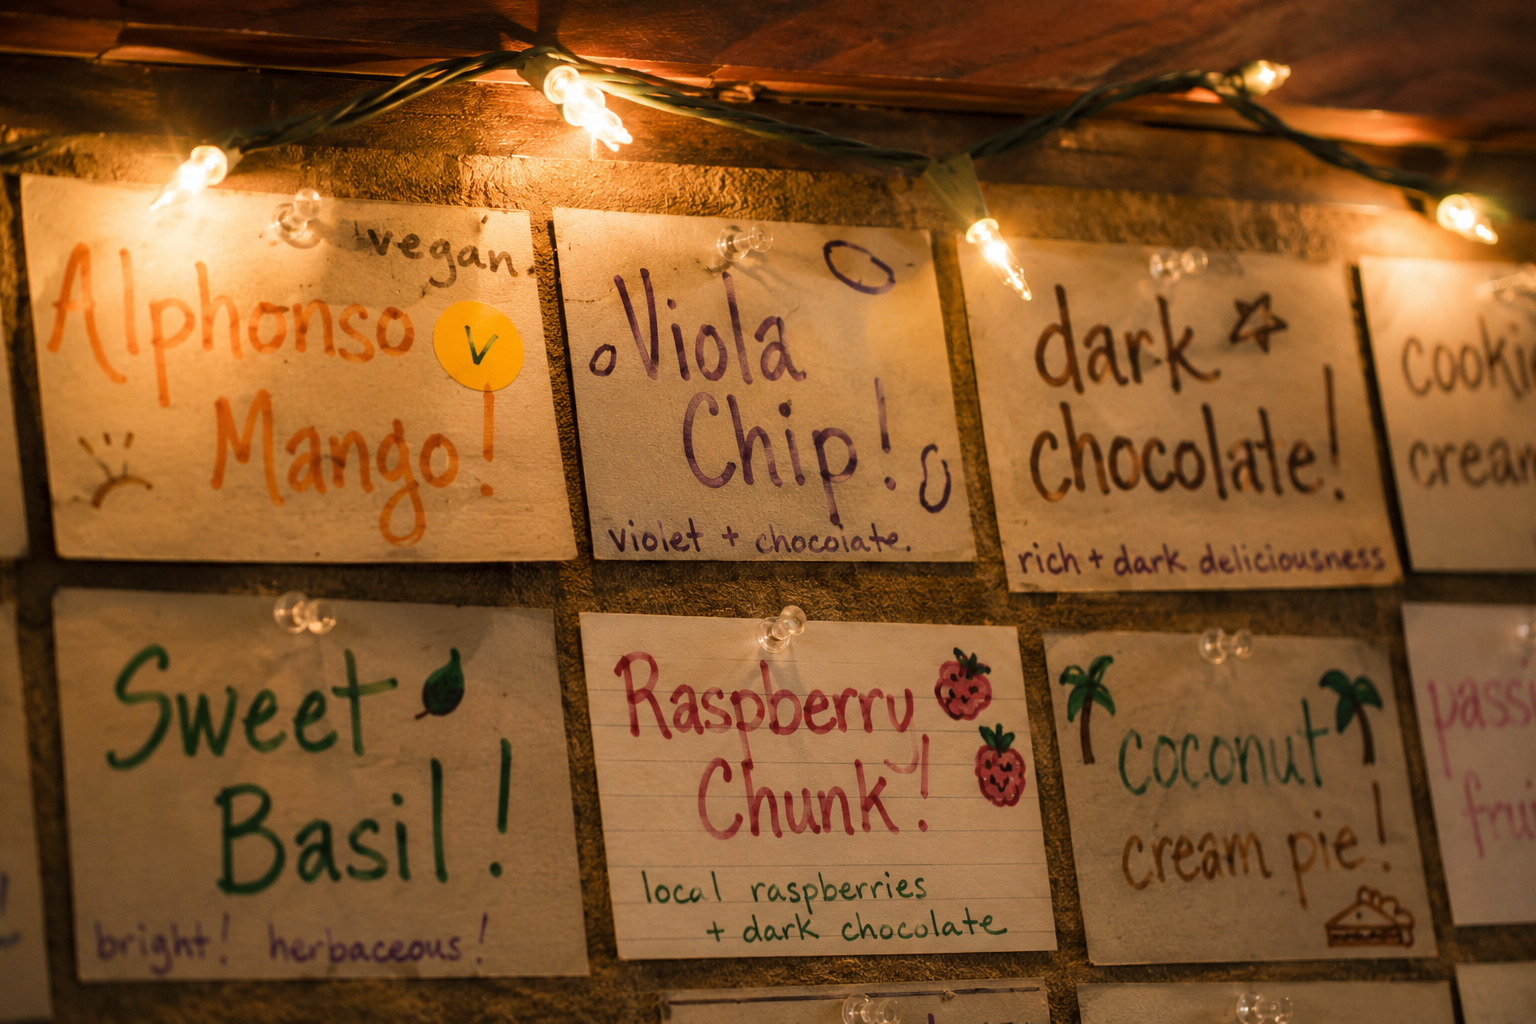 vegan.
Alphonso
V
Mango!
Viola
Chip!
violet + chocolate.
dark
chocolate!
rich + dark deliciousness
Sweet
Basil!
bright! herbaceous!
Raspberry
Chunk!
local raspberries
+ dark chocolate
coconut
cream pie!